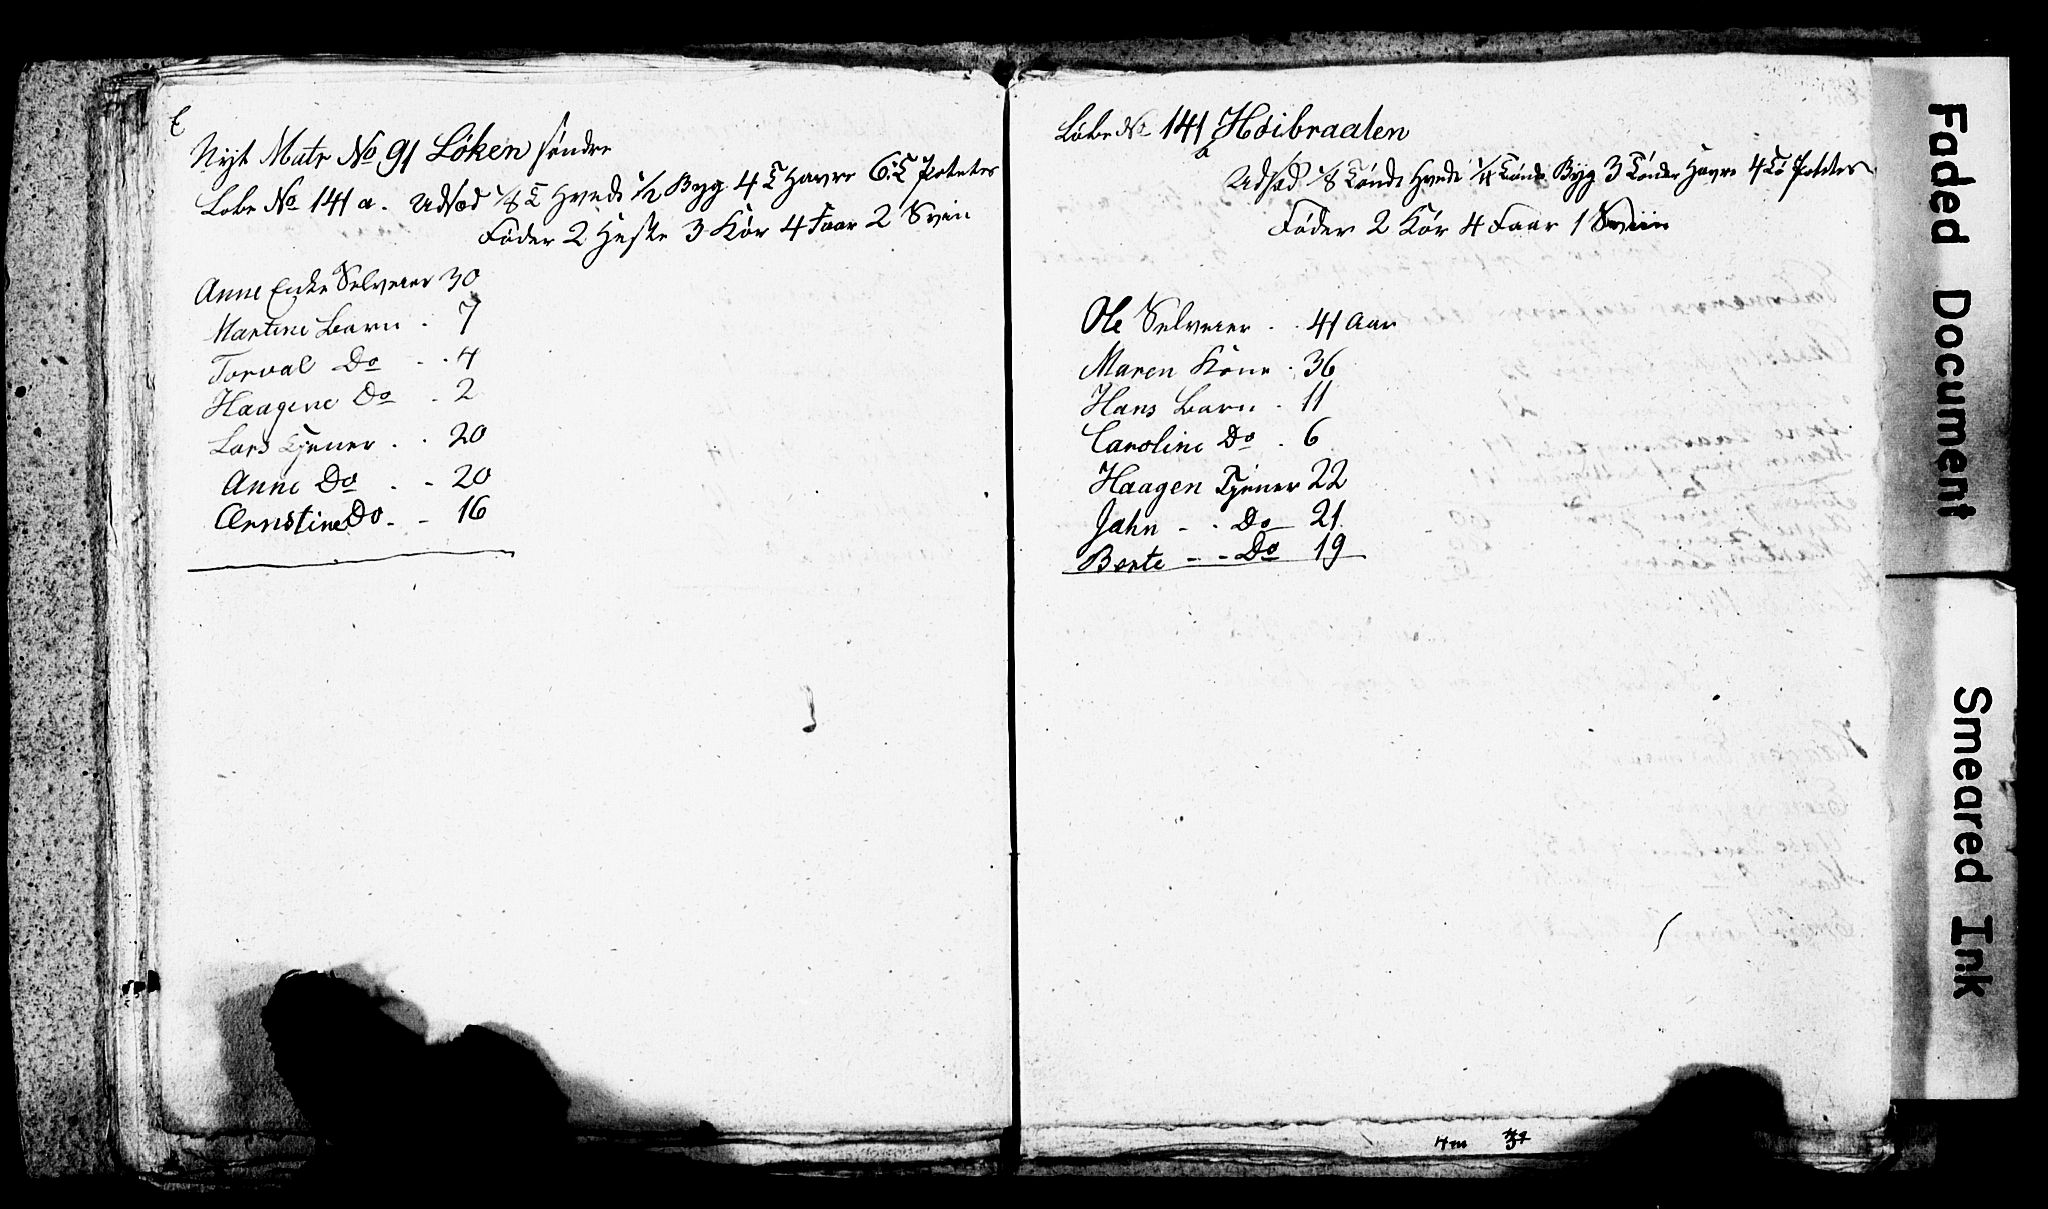 Nyt Matr No 91 Løken søndre
Løbe No 141 a. Udsæd 1/8 T Hvede 1/2 Byg 4 T Havre 6 T Poteter
Føder 2 Heste 3 Kør 4 Faar 2 Svin
Anne Enke Selveier 30
Martine Barn . 7
Torval Do . . 4
Haagene Do . 2
Lars Tjener . . 20
Anne Do . . 20
Ernstine Do . . 16
Løbe No 141 b Høibraaten
Udsæd 1/8 Tønde Hvede 1/4 Tønde Byg 3 Tønder Havre 4 Tø Poteter
Føder 2 Kør 4 Faar 1 Sviin
Ole Selveier . . 41 Aar
Maren Kone . 36
Hans Barn . 11
Caroline Do . 6
Haagen Tjener 22
Jahn - . Do 21.
Berte - - Do 19
7m 37
Faded Document
Smeared Ink